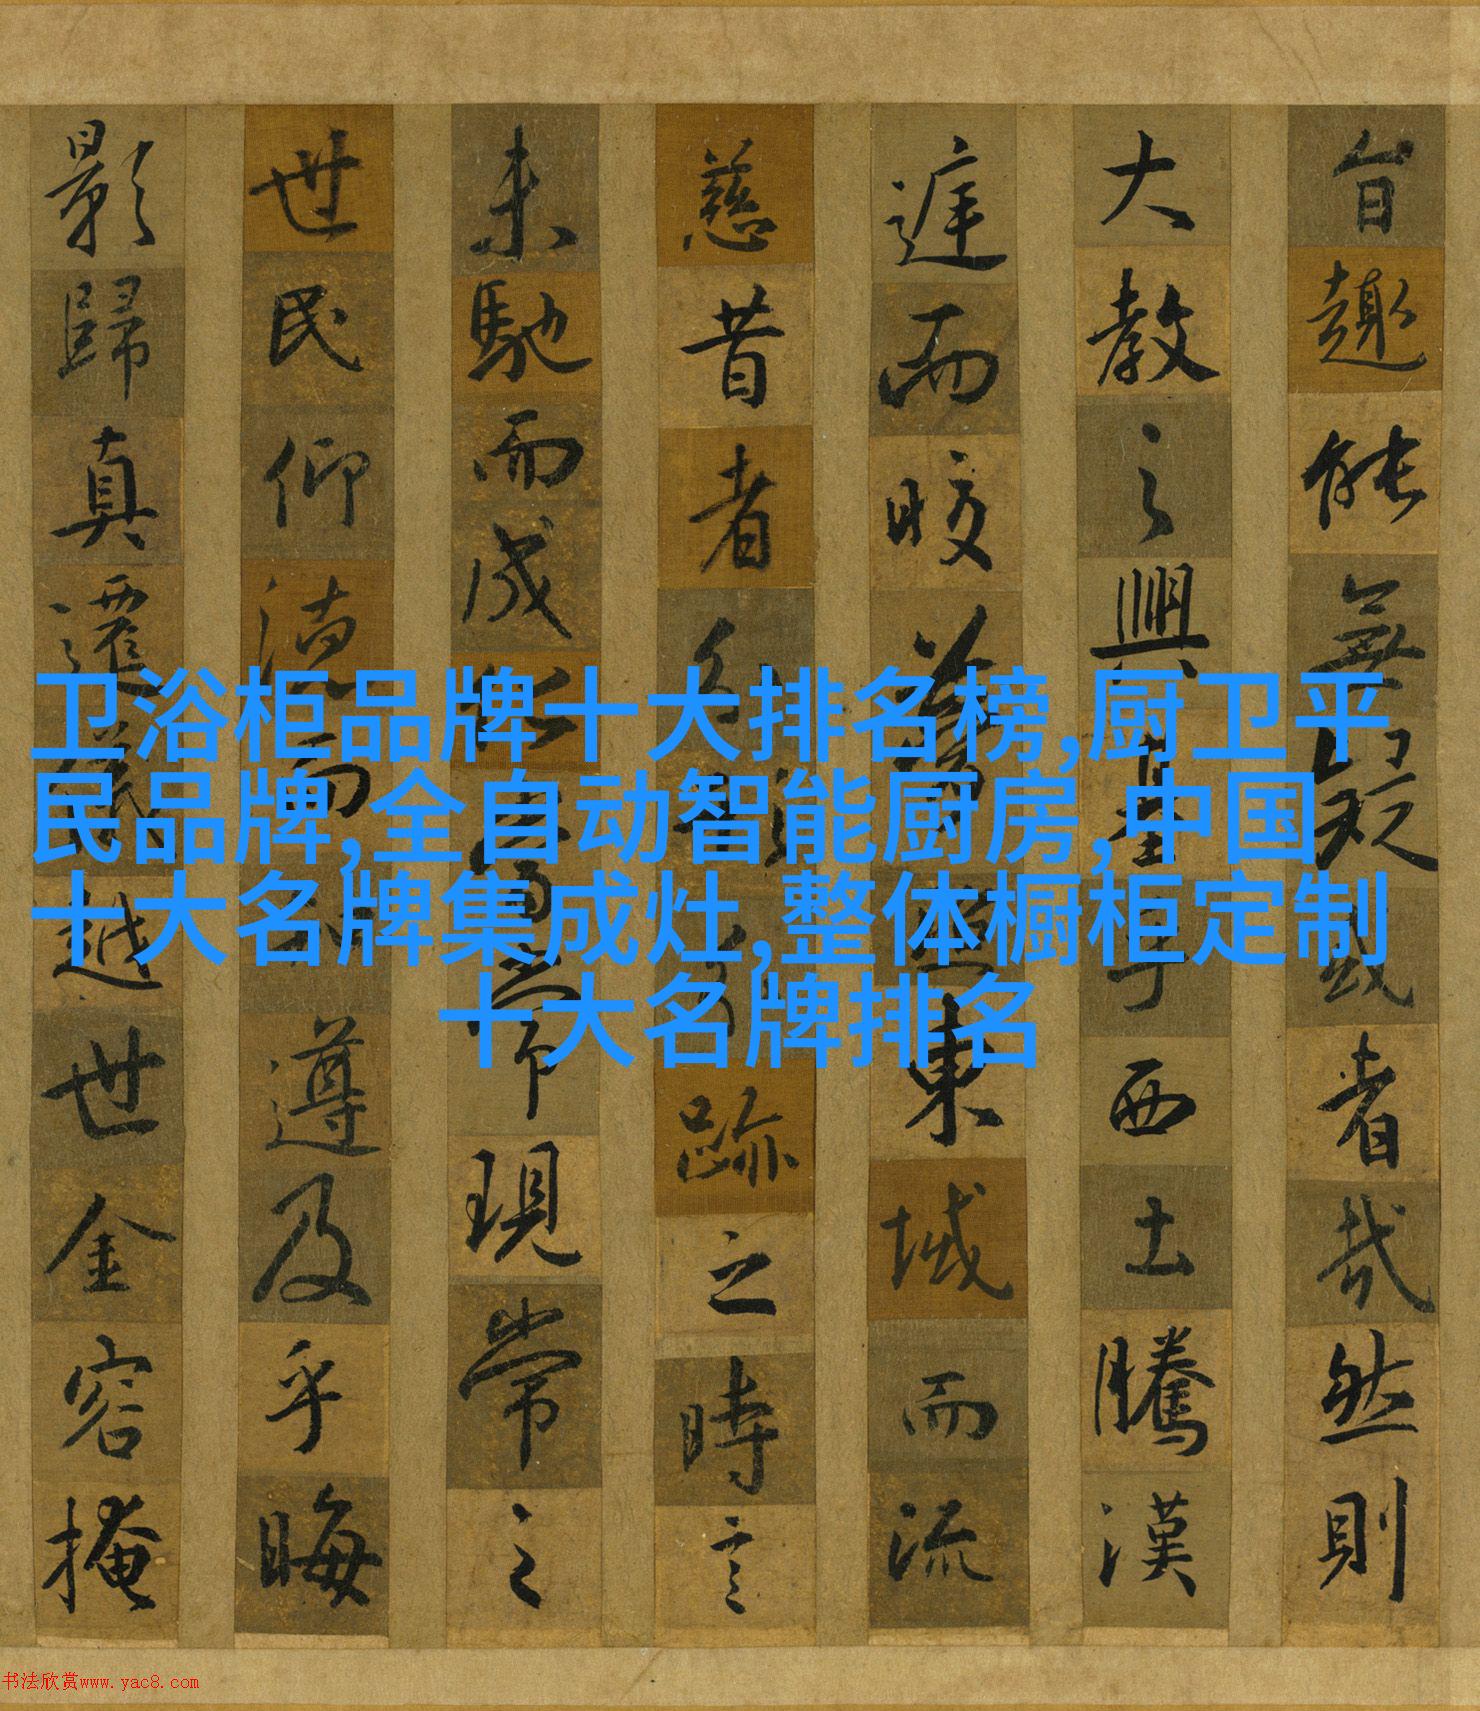 旨趣能無疑或者哉然則
大教之興基乎西土騰漢
庭而皎夢照東域而流
慈昔者分形分跡之時言
未馳而成化當常現常之
世民仰德而知遵及乎晦
影歸真遷儀越世金容掩
卫浴柜品牌十大排名榜,厨卫平
民品牌,全自动智能厨房,中国
十大名牌集成灶,整体橱柜定制
十大名牌排名
书法欣赏www.yac8.com